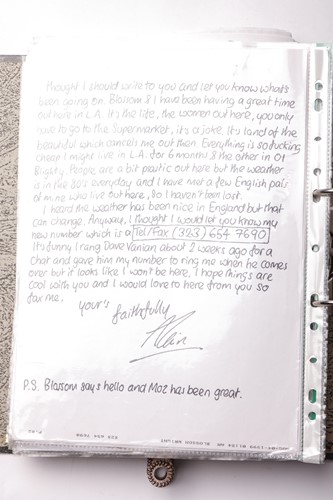 Thought I should write to you and let you know what's
been going on. Blossom & I have been having a great time
out here in L.A. It's the life, the women out here, you only
have to go to the Supermarket, it's a joke. Its land of the
beautiful which cancels me out then. Everything is so fucking
cheap I might live in L.A. for 6 months & the other in Ol
Blighty. People are a bit plastic out here but the weather
is in the 80's everyday and I have met a few English pals
of mine who live out here, so I haven't been lost.
I heard the weather has been nice in England but that
can change. Anyway, I thought I would let you know my
new number which is Tel/Fax (323) 654 7690
Its funny I rang Dave Vanian about 2 weeks ago for a
chat and gave him my number to ring me when he comes
over but it looks like I won't be here. I hope things are
cool with you and I would love to here from you so
fax me.
your's
faithfully
Alain
P.S. Blossom says hello and Moz has been great.